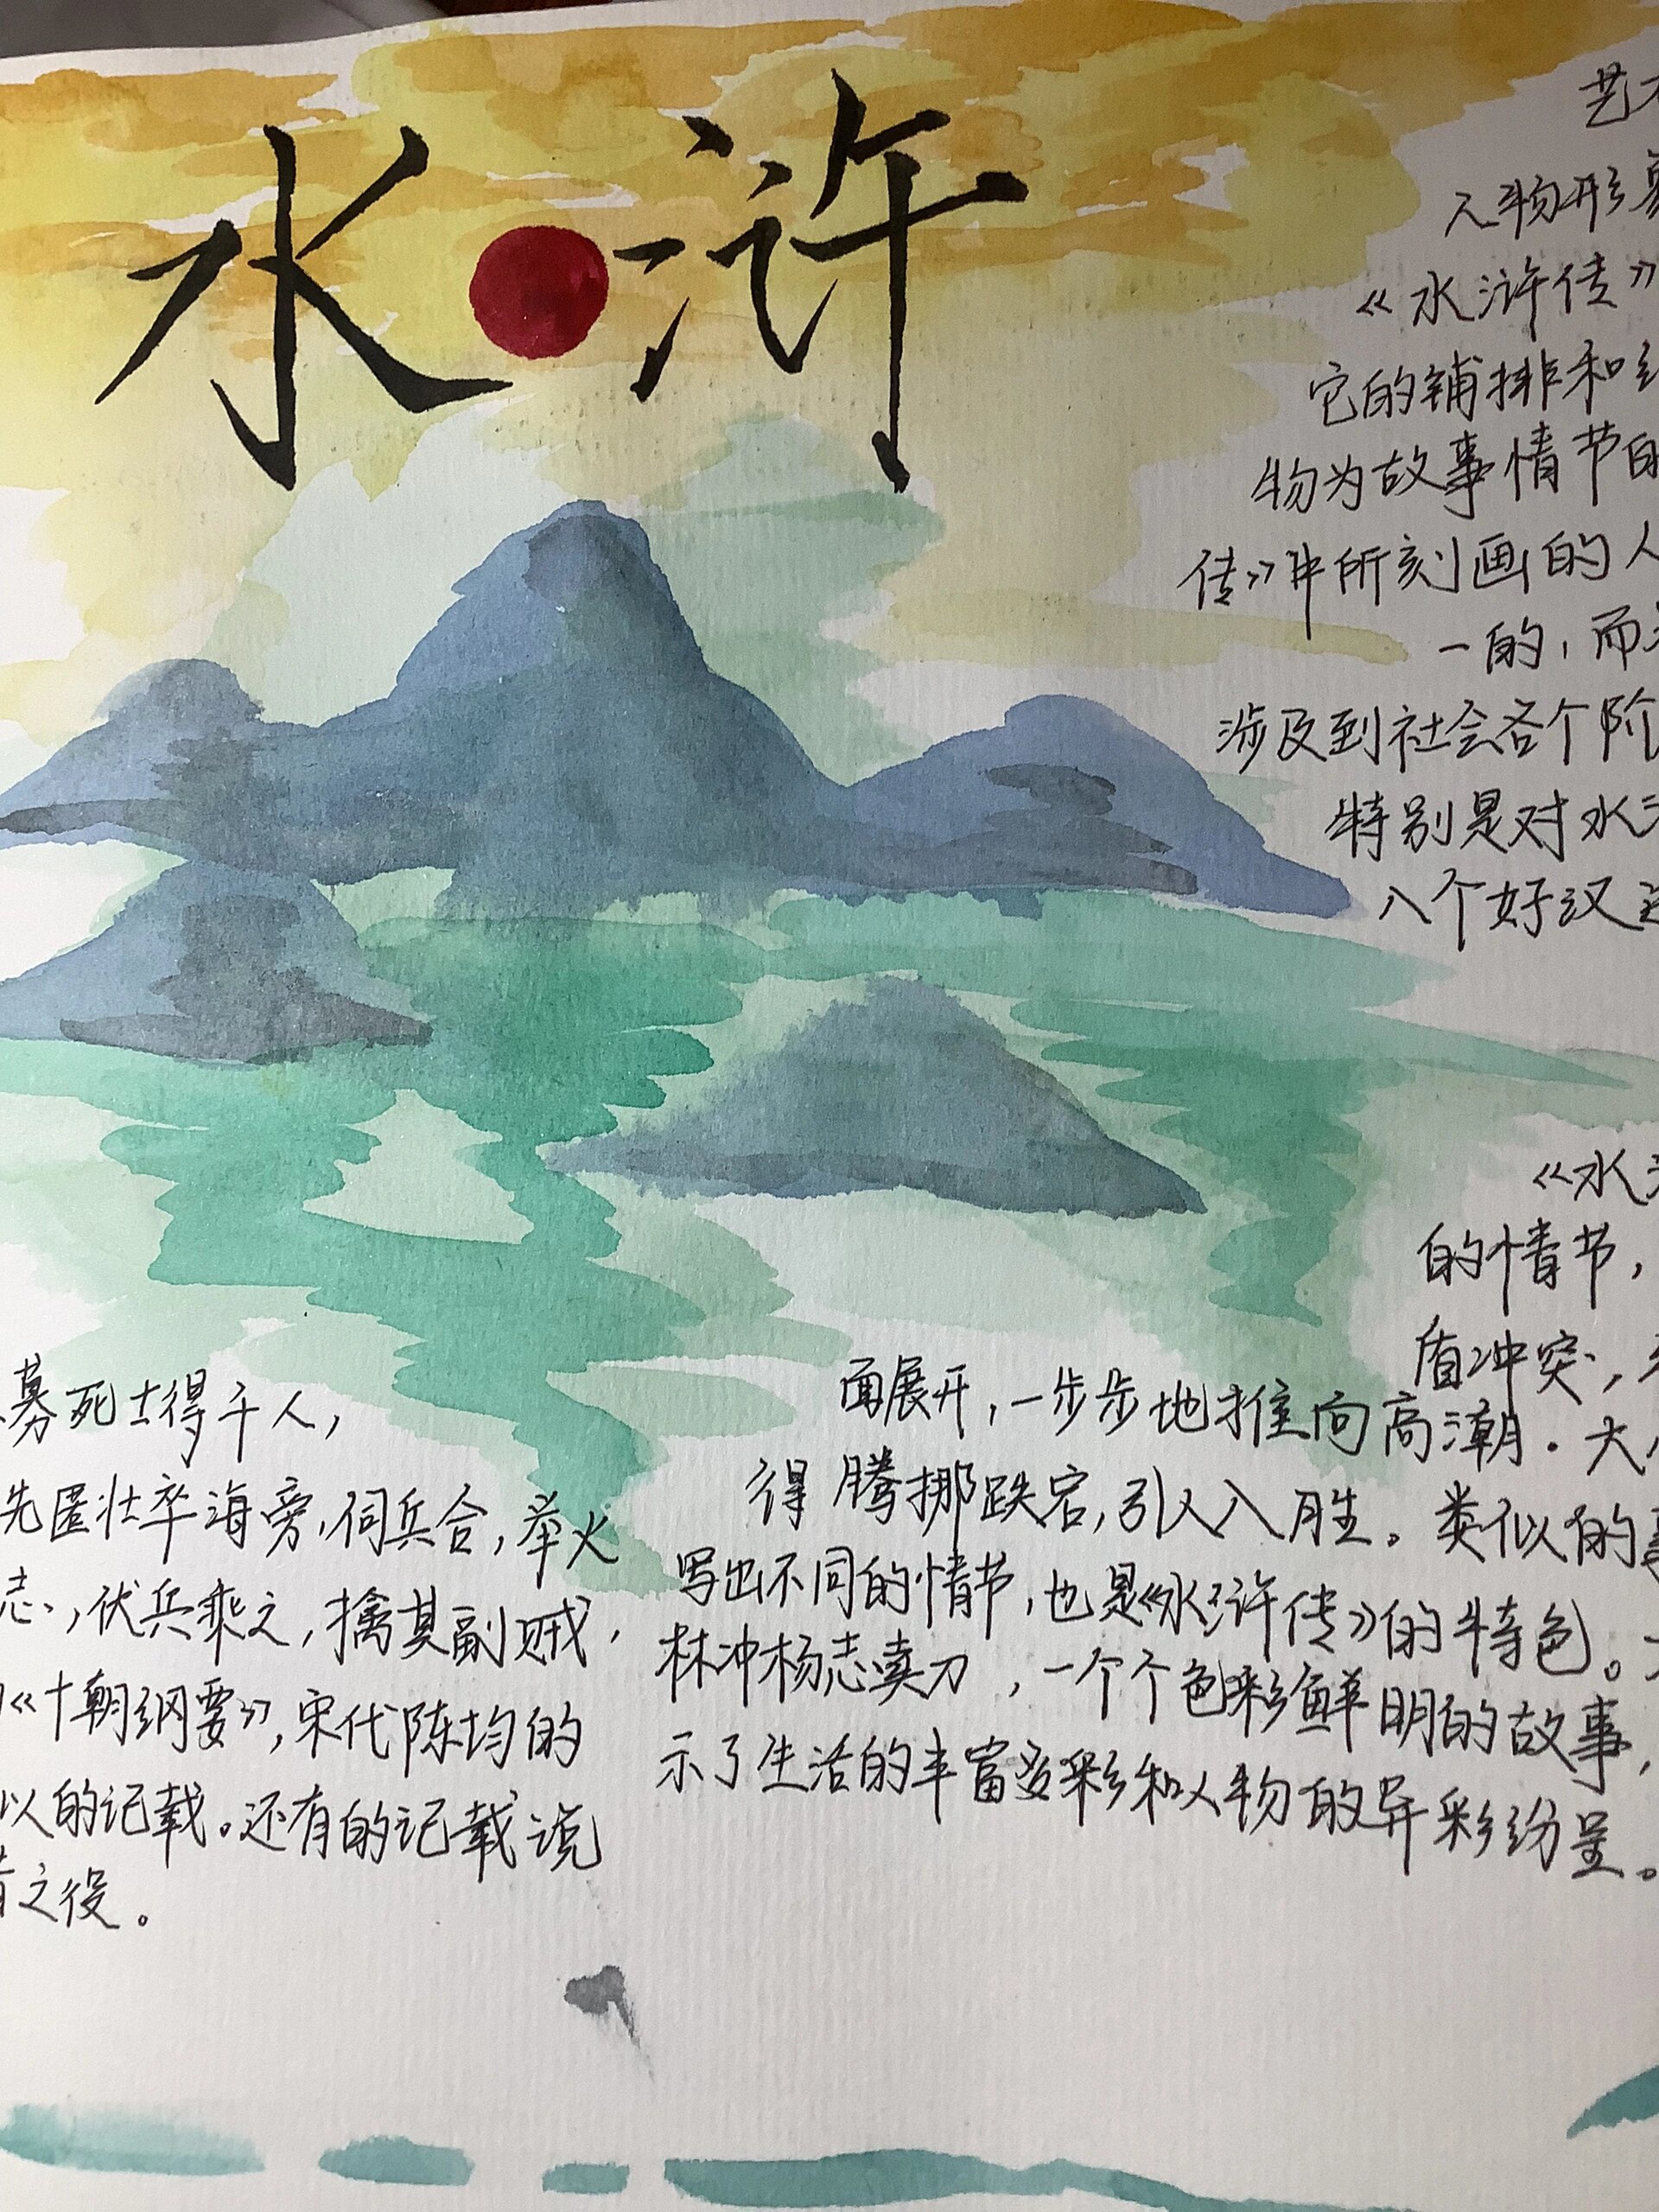 水浒
艺
人物形象
《水浒传》
它的铺排和
物为故事情节的
传》中所刻画的人
一的，而
涉及到社会各个阶
特别是对水
八个好汉
《水
的情节，
盾冲突，
面展开，一步步地推向高潮。大
得腾挪跌宕，引人入胜。类似的事
写出不同的情节，也是《水浒传》的特色。
林冲杨志卖刀，一个个色彩鲜明的故事，
示了生活的丰富多彩和人物的异彩纷呈。
募死士得千人，
先匿壮卒海旁，伺兵合，举火
志，伏兵乘之，擒其副贼，
《十朝纲要》，宋代陈均的
以的记载。还有的记载说
之役。